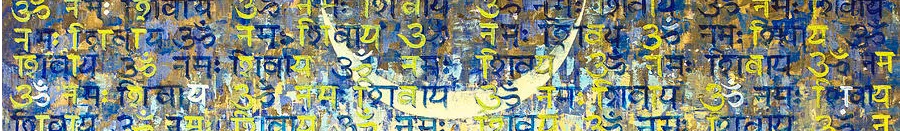 ॐ नमः शिवाय ॐ नमः शिवाय ॐ नमः शिवाय ॐ
नमः शिवाय ॐ नमः शिवाय ॐ नमः शिवाय ॐ नमः
शिवाय ॐ नमः शिवाय ॐ नमः शिवाय ॐ नमः शिवाय ॐ नमः
ॐ नम शिवाय ॐ नम शिवाय ॐ नम शिवाय ॐ नमः शिवाय
शिवाय ॐ नमः शिवाय ॐ नमः शिवाय ॐ नम